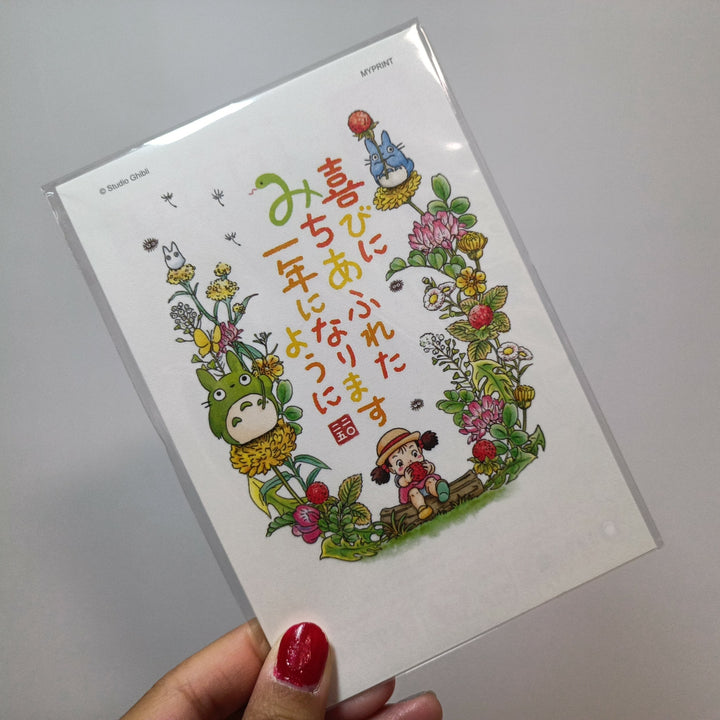 © Studio Ghibli
MYPRINT
喜びに
みちあふれた
一年になります
ように
二〇
二五